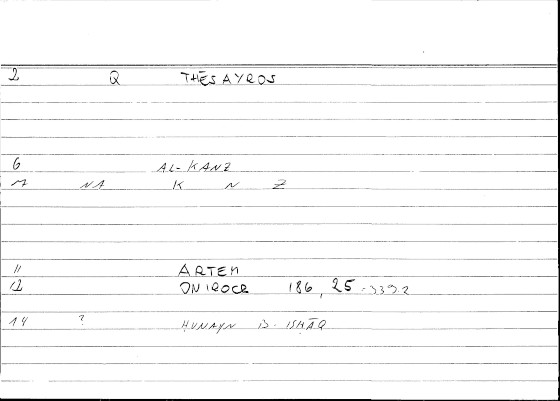 2 Q THĒSAYROS
6 AL-KANZ
7 NA K N Z
11 ARTEM
12 ONIROCR 186, 25 - 339.2
14 ? ḤUNAYN B. ISḤĀQ